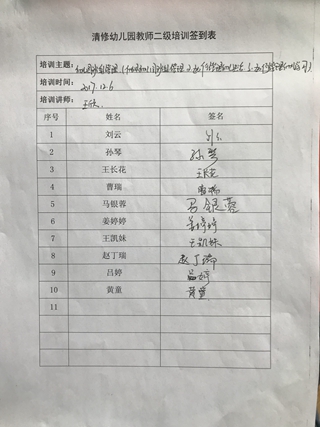 清修幼儿园教师二级培训签到表
培训主题：
培训时间： 2017.12.6
培训讲师：
序号 姓名 签名
1 刘云
2 孙琴 孙琴
3 王长花 王长花
4 曹瑞 曹瑞
5 马银蓉 马银蓉
6 姜婷婷 姜婷婷
7 王凯妹 王凯妹
8 赵丁瑞 赵丁瑞
9 吕婷 吕婷
10 黄童 黄童
11